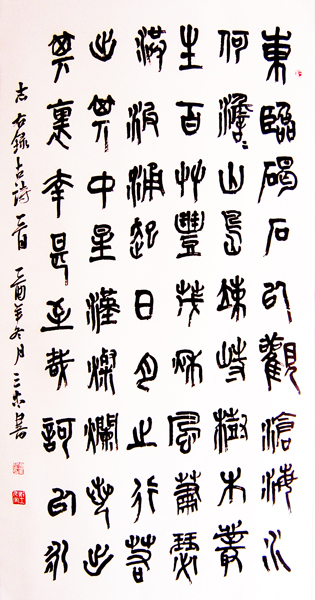 東臨碣石以觀滄海水
何澹〻山島竦峙樹木叢
生百艸豐茂秋風蕭瑟
洪波涌起日月之行若
出其中星漢燦爛若出
其裏幸甚至哉謌以永
志右錄古詩一首 酉年冬月三書